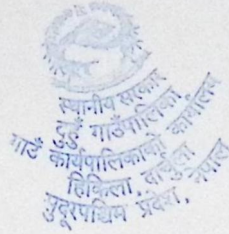 स्थानीय सरकार
दुहुँ गाउँपालिका
गाउँ कार्यपालिकाको कार्यालय
हिकिला, दार्चुला
सुदूरपश्चिम प्रदेश, नेपाल